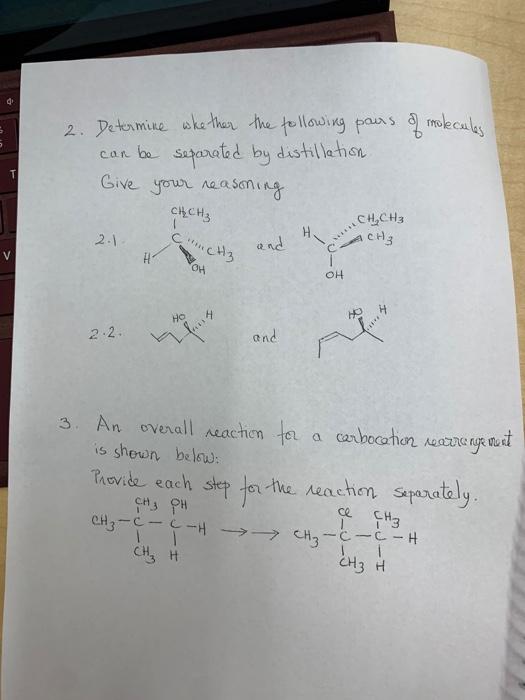 2. Determine whether the following pairs of molecules
can be separated by distillation
Give your reasoning
2.1. CH2CH3 C H CH3 OH and H C CH2CH3 CH3 OH
2.2. HO H and HO H
3. An overall reaction for a carbocation rearrangement
is shown below:
Provide each step for the reaction separately.
CH3 OH Cl CH3
CH3-C-C-H →→ CH3-C-C-H
CH3 H CH3 H
T
V